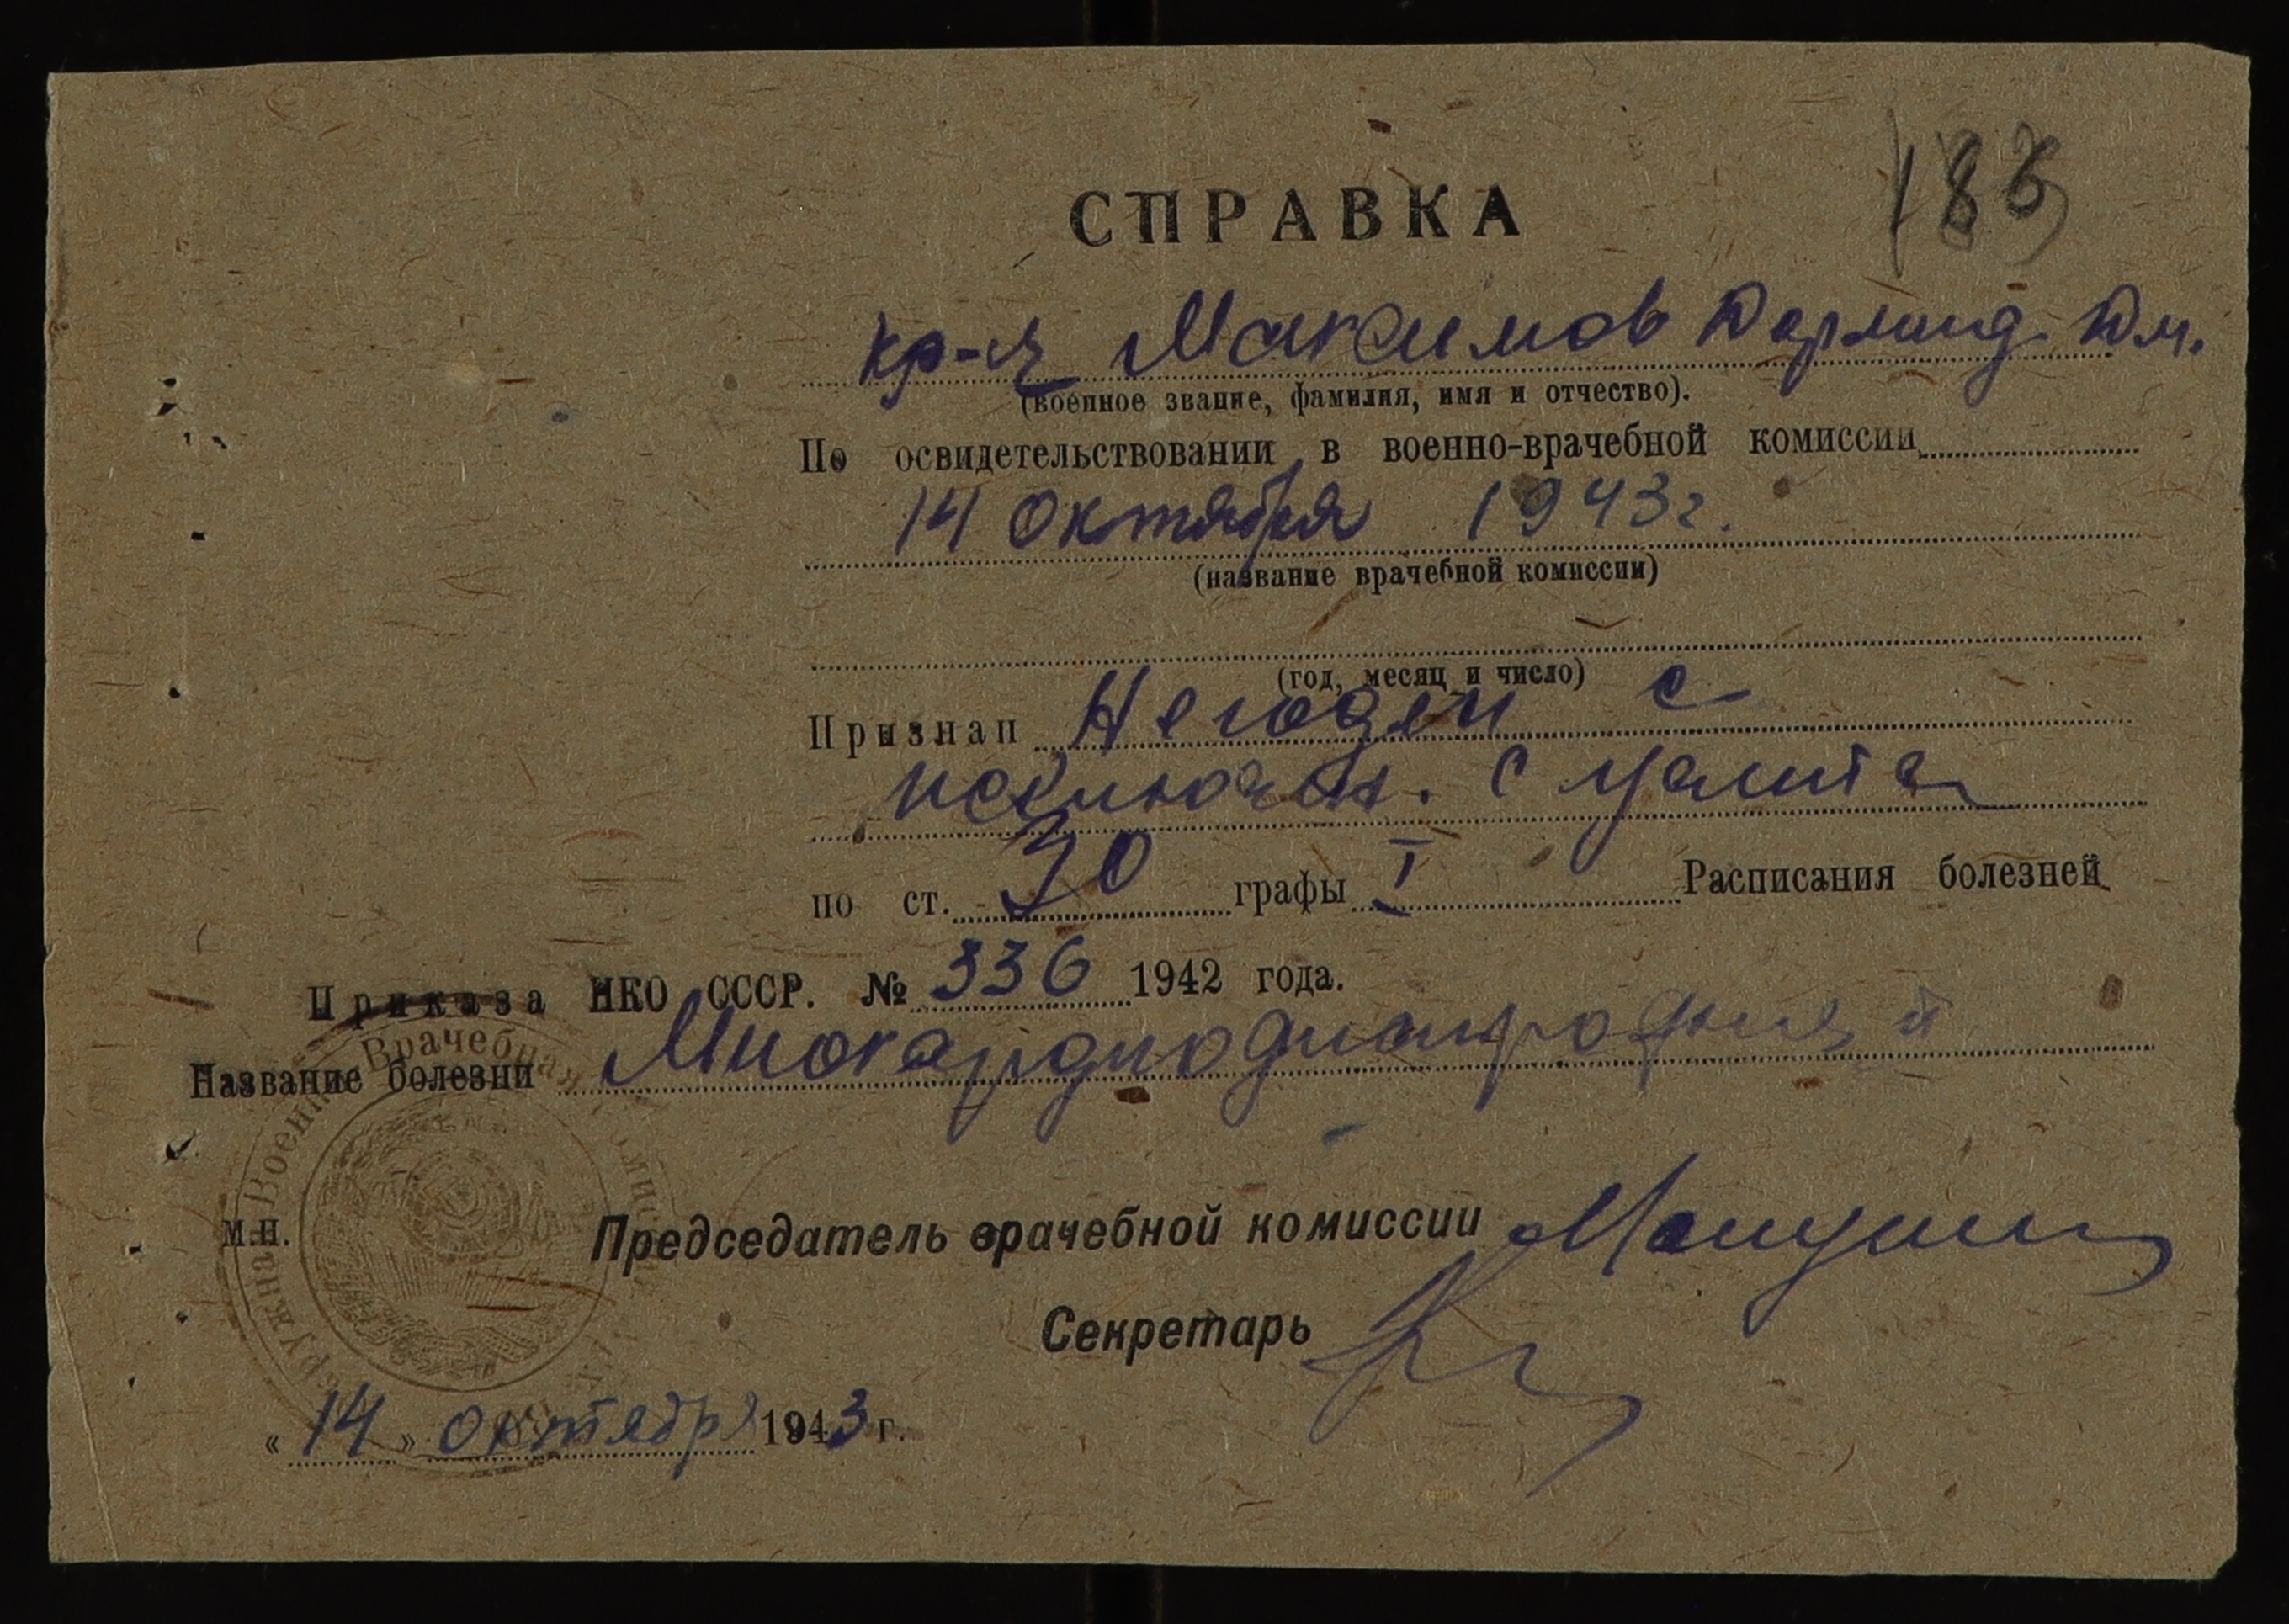 СПРАВКА
кр-ц Максимов Дормид. Дм.
(военное звание, фамилия, имя и отчество).
По освидетельствовании в военно-врачебной комиссии
14 октября 1943 г.
(название врачебной комиссии)
(год, месяц и число)
Признан Негоден с
исключен. с учета
по ст. 30 графы I Расписания болезней
Приказа НКО СССР. № 336 1942 года.
Название болезни Миокардиодистрофия
м.п.
Председатель врачебной комиссии
Секретарь
«14» октября 1943 г.
Военно Врачебная